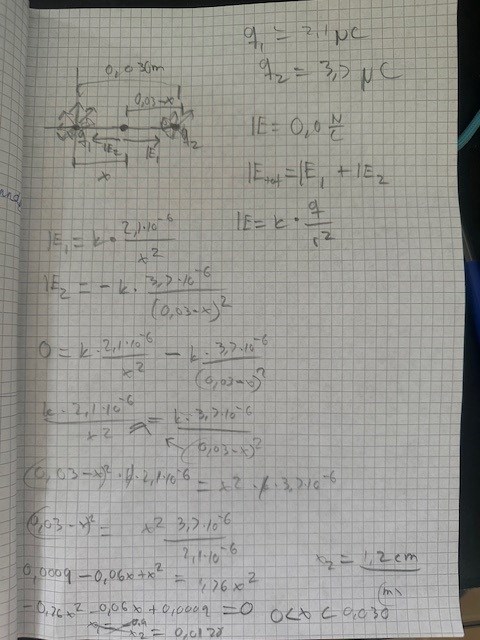 q₁ = 2,1 μC
q₂ = 3,7 μC
0,030m
0,03-x
q₁ E₂ E₁ q₂
x
E = 0,0 N/C
E_tot = E₁ + E₂
E = k · q/r²
E₁ = k · 2,1·10⁻⁶/x²
E₂ = -k · 3,7·10⁻⁶/(0,03-x)²
0 = k · 2,1·10⁻⁶/x² - k · 3,7·10⁻⁶/(0,03-x)²
k · 2,1·10⁻⁶/x² = k · 3,7·10⁻⁶/(0,03-x)²
(0,03-x)² · k · 2,1·10⁻⁶ = x² · k · 3,7·10⁻⁶
(0,03-x)² = x² 3,7·10⁻⁶/2,1·10⁻⁶
0,0009 - 0,06x + x² = 1,76x²
-0,76x² - 0,06x + 0,0009 = 0
x₂ =
x₂ = 1,2 cm
(m)
0 < x < 0,030